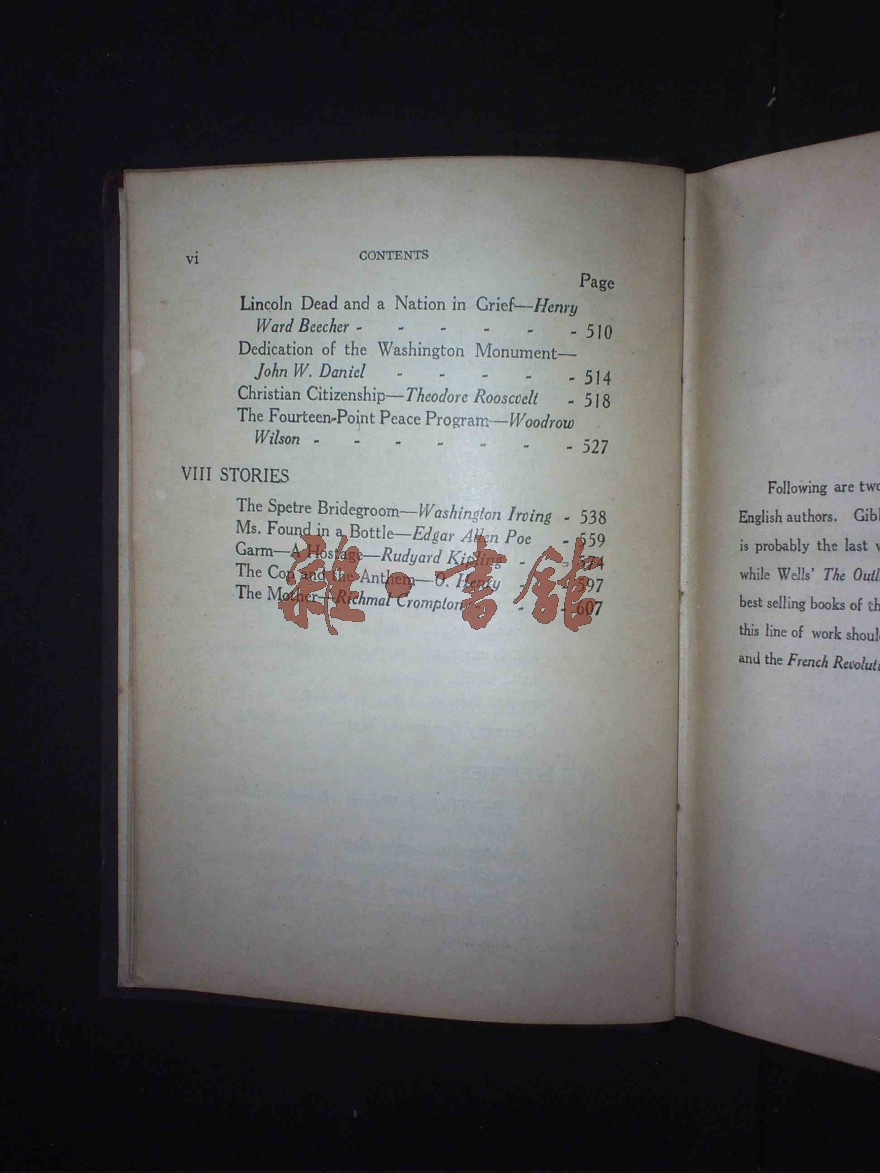 vi
CONTENTS
Page
Lincoln Dead and a Nation in Grief—Henry
Ward Beecher - - - - - - 510
Dedication of the Washington Monument—
John W. Daniel - - - - - 514
Christian Citizenship—Theodore Roosevelt - 518
The Fourteen-Point Peace Program—Woodrow
Wilson - - - - - - - 527
VIII STORIES
The Spetre Bridegroom—Washington Irving - 538
Ms. Found in a Bottle—Edgar Allen Poe - 559
Garm—A Hostage—Rudyard Kipling - - 574
The Cop and the Anthem—O. Henry - 597
The Mother—Richmal Crompton - - 607
雜·書館
Following are two
English authors. Gibb
is probably the last
while Wells' The Outl
best selling books of th
this line of work shoul
and the French Revoluti